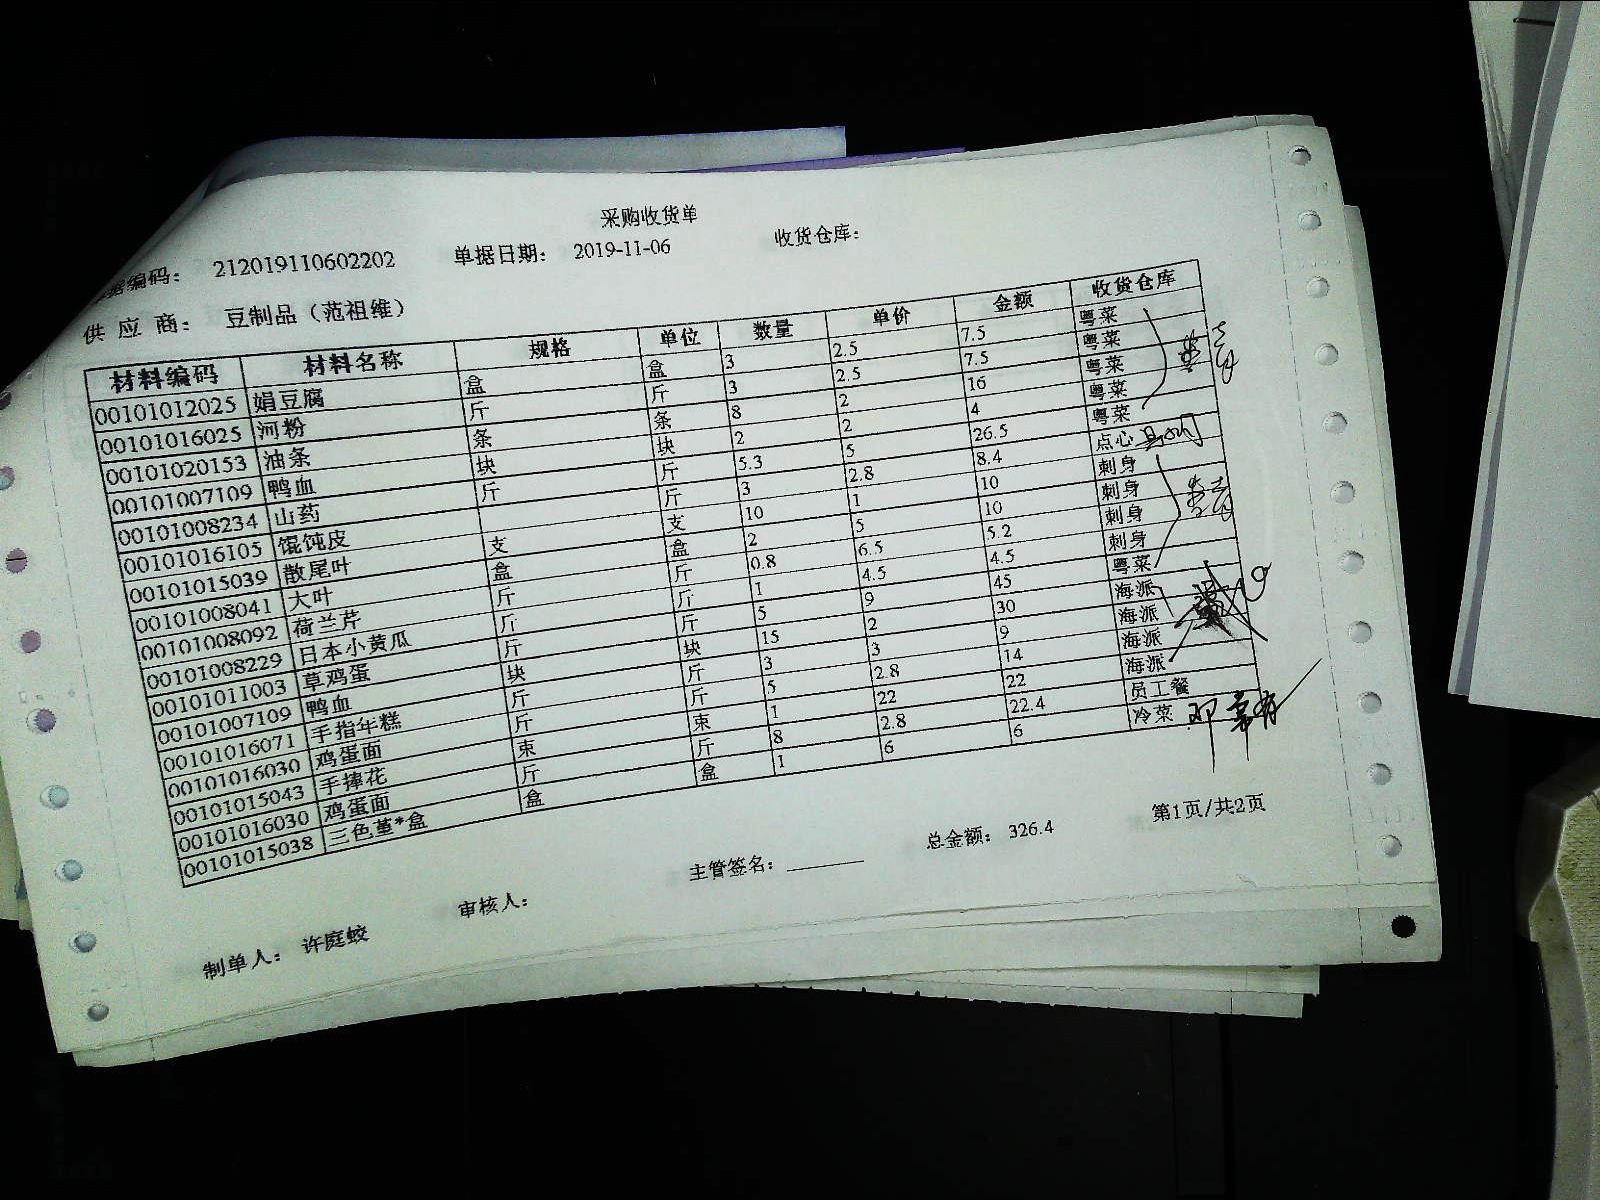 采购收货单
据编码： 212019110602202 单据日期： 2019-11-06 收货仓库：
供 应 商： 豆制品（范祖维）
材料编码 材料名称 规格 单位 数量 单价 金额 收货仓库
00101012025 娟豆腐 盒 盒 3 2.5 7.5 粤菜
00101016025 河粉 斤 斤 3 2.5 7.5 粤菜
00101020153 油条 条 条 8 2 16 粤菜
00101007109 鸭血 块 块 2 2 4 粤菜
00101008234 山药 斤 斤 5.3 5 26.5 粤菜
00101016105 馄饨皮 斤 3 2.8 8.4 点心
00101015039 散尾叶 支 支 10 1 10 刺身
00101008041 大叶 盒 盒 2 5 10 刺身
00101008092 荷兰芹 斤 斤 0.8 6.5 5.2 刺身
00101008229 日本小黄瓜 斤 斤 1 4.5 4.5 刺身
00101011003 草鸡蛋 斤 斤 5 9 45 粤菜
00101007109 鸭血 块 块 15 2 30 海派
00101016071 手指年糕 斤 斤 3 3 9 海派
00101016030 鸡蛋面 斤 斤 5 2.8 14 海派
00101015043 手捧花 束 束 1 22 22 海派
00101016030 鸡蛋面 斤 斤 8 2.8 22.4 员工餐
00101015038 三色堇*盒 盒 盒 1 6 6 冷菜
第1页/共2页
制单人： 许庭蛟 审核人： 主管签名： 总金额： 326.4